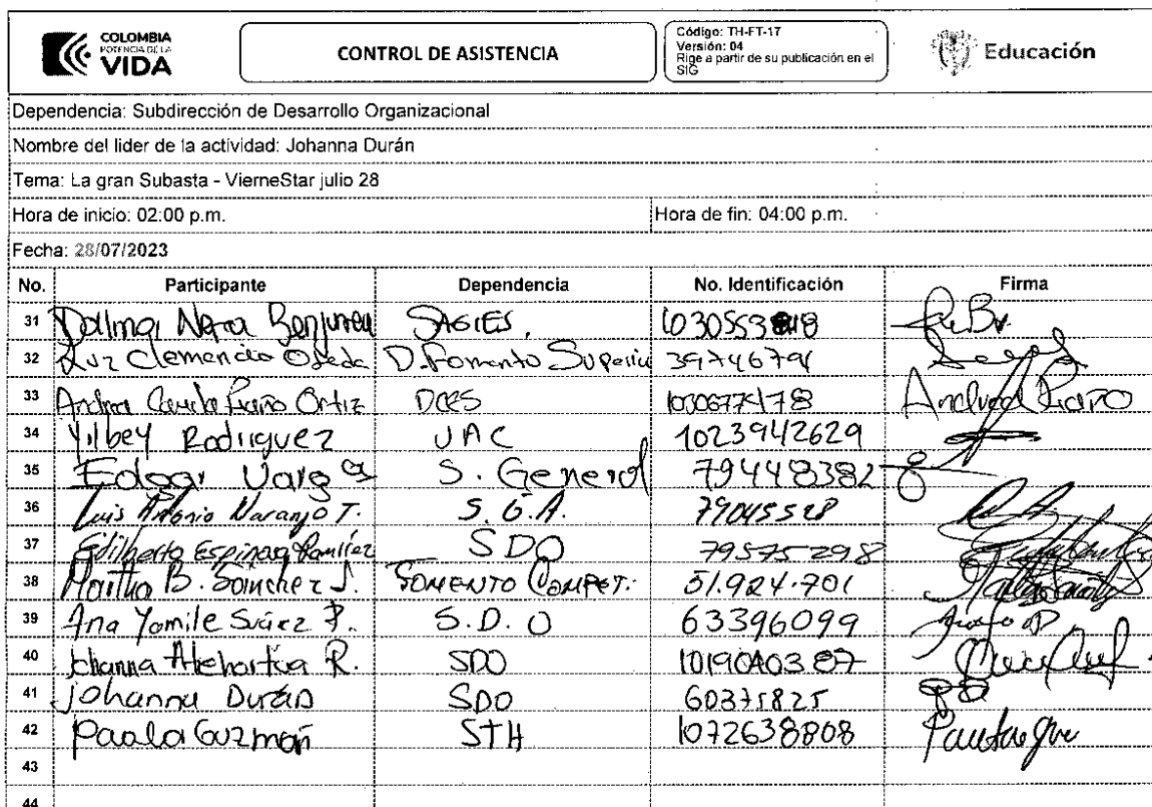 COLOMBIA
POTENCIA DE LA
VIDA
CONTROL DE ASISTENCIA
Código: TH-FT-17
Versión: 04
Rige a partir de su publicación en el
SIG
Educación
Dependencia: Subdirección de Desarrollo Organizacional
Nombre del lider de la actividad: Johanna Durán
Tema: La gran Subasta - VierneStar julio 28
Hora de inicio: 02:00 p.m. Hora de fin: 04:00 p.m.
Fecha: 28/07/2023
No. Participante Dependencia No. Identificación Firma
31 SAGIES,
32 Luz Clemencia D. Fomento Superior 39746794
33 Ortiz Andrea Riaño
34 Yilbey Rodriguez UAC 1023942629
35 Edgar Vargas S. General 79448382
36 Luis Antonio Naranjo T. S.G.A. 79045528
37 Edilberto Espinosa Ramírez SDO 79575298
38 Martha B. Sánchez J. FOMENTO COMPET. 51.924.701
39 Ana Yamile Suárez P. S.D.O 63396099
40 Johanna Atehortúa R. SDO
41 Johanna Durán SDO 60375825
42 Paola Guzmán STH 1072638808
43
44